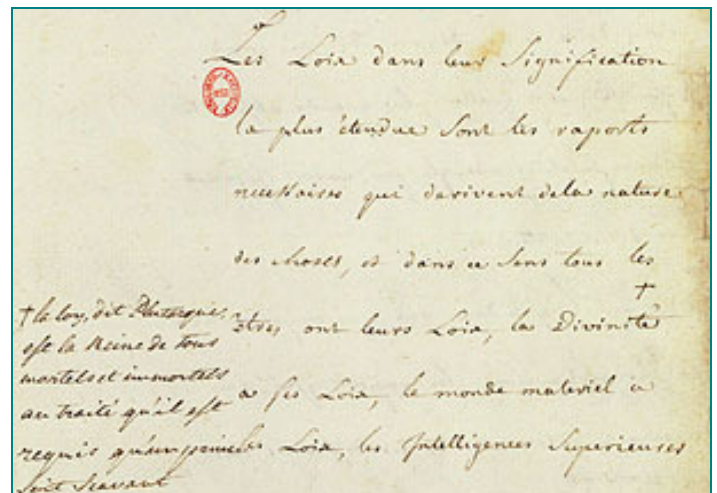 Les Loix dans leur Signification
la plus étendue Sont les raports
necessaires qui derivent dela nature
des choses, et dans ce Sens tous les
êtres ont leurs Loix, la Divinité †
a ses Loix, le monde materiel a
ses Loix, les Intelligences Superieuses
† la loy, dit Plutarque,
est la Reine de tous
mortels et immortels
au traité qu'il est
requis qu'un prince
soit Scavant